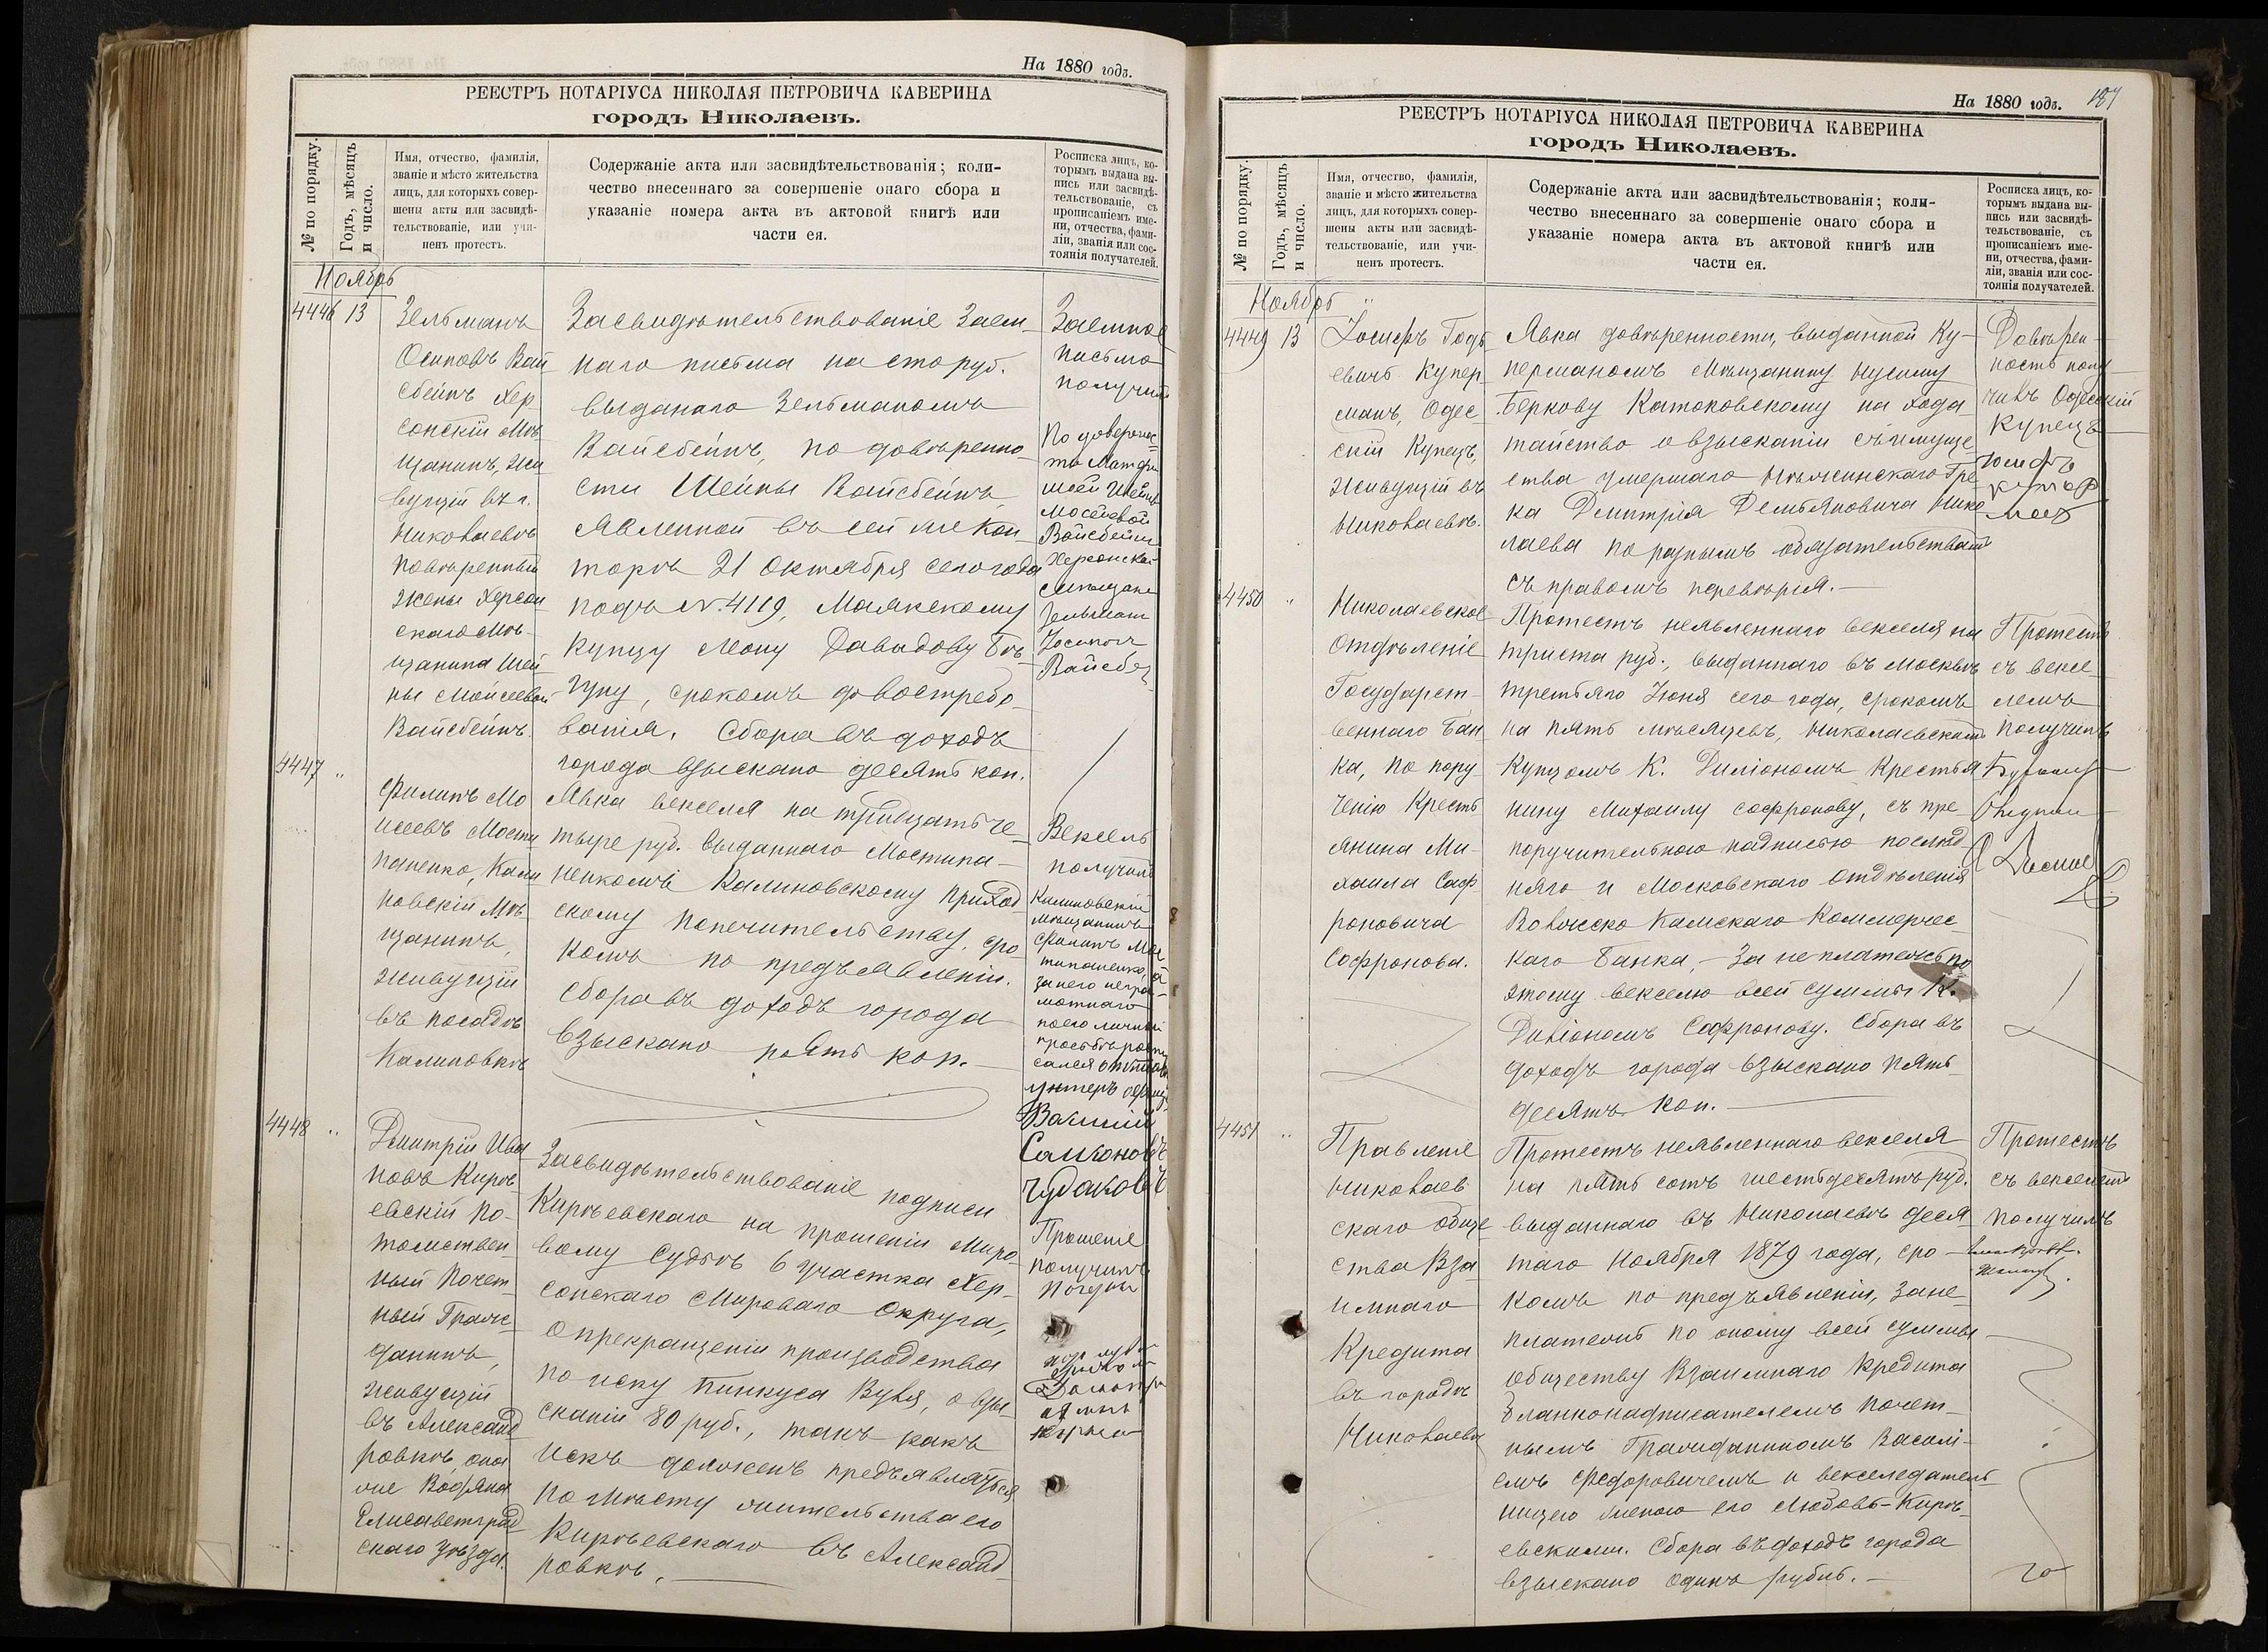 На 1880 годъ.
РЕЕСТРЪ НОТАРІУСА НИКОЛАЯ ПЕТРОВИЧА КАВЕРИНА
городъ Николаевъ.
№ по порядку.
Годъ, мѣсяцъ
и число.
Имя, отчество, фамилія,
званіе и мѣсто жительства
лицъ, для которыхъ совер-
шены акты или засвидѣ-
тельствованіе, или учи-
ненъ протестъ.
Содержаніе акта или засвидѣтельствованія; коли-
чество внесеннаго за совершеніе онаго сбора и
указаніе номера акта въ актовой книгѣ или
части ея.
Росписка лицъ, ко-
торымъ выдана вы-
пись или засвидѣ-
тельствованіе, съ
прописаніемъ име-
ни, отчества, фами-
ліи, званія или сос-
тоянія получателей.
Ноябрь
4446 13
Зельманъ
Осиповъ Вай
сбейнъ Хер
сонскій Мѣ
щанинъ, жи
вущій въ г.
Николаевѣ
повѣренный
жены Херсон
скаго Мѣ-
щанина Шей
ны Мойсеевой
Вайсбейнъ.
Засвидѣтельствованіе Заем-
наго письма на сто руб.
выданаго Зельманомъ
Вайсбейнъ, по довѣренно-
сти Шейны Вайсбейнъ
явленной въ сей же Кон-
торѣ 21 Октября сего года
подъ №. 4119, Маякскому
купцу Леону Давидову Бѣ-
гуну, срокомъ до востребо-
ванія. Сбора въ доходъ
города взыскано десять коп.
Заемное
письмо
получилъ
По довѣренос
ти
Шейны
Мосеевой
Вайсбейнъ
Херсонской
Мещан
Зельман
Іосипов
Вайсбе
4447 "
Филипъ Мо
исеевъ Мости
паненко, Кали
новскій Мѣ-
щанинъ,
живущій
въ посадѣ
Калиновкѣ
Явка векселя на тридцать че-
тыре руб. выданнаго Мостипа-
ненкомъ Калиновскому приход-
скому попечительству, сро-
комъ по предъявленіи.
Сбора въ доходъ города
взыскано пять коп.
Вексель
получилъ
Калиновскій
мѣщанинъ
Филипъ Мос
типаненко, а
за него негра-
мотнаго
по его личной
просьбѣ роспи
сался отставн
унтеръ офиц
Василій
Самсоновъ
Чудаковъ
4448 "
Дмитрій Ива
новъ Кирѣ-
евскій по-
томствен
ный Почет
ный Граж-
данинъ,
живущій
въ Александ
ровкѣ, она
же Водяна
Елисаветград
скаго уѣзда.
Засвидѣтельствованіе подписи
Кирѣевскаго на прошеніи Миро-
вому Судьѣ 6 участка Хер-
сонскаго Мироваго Округа,
о прекращеніи производства
по иску Пинкуса Вувя, о взы-
сканіи 80 руб., такъ какъ
искъ долженъ предъявляться
по мѣсту жительства его
Кирѣевскаго въ Александ-
ровкѣ.
Прошеніе
получилъ
На 1880 годъ.
187
РЕЕСТРЪ НОТАРІУСА НИКОЛАЯ ПЕТРОВИЧА КАВЕРИНА
городъ Николаевъ.
№ по порядку.
Годъ, мѣсяцъ
и число.
Имя, отчество, фамилія,
званіе и мѣсто жительства
лицъ, для которыхъ совер-
шены акты или засвидѣ-
тельствованіе, или учи-
ненъ протестъ.
Содержаніе акта или засвидѣтельствованія; коли-
чество внесеннаго за совершеніе онаго сбора и
указаніе номера акта въ актовой книгѣ или
части ея.
Росписка лицъ, ко-
торымъ выдана вы-
пись или засвидѣ-
тельствованіе, съ
прописаніемъ име-
ни, отчества, фами-
ліи, званія или сос-
тоянія получателей.
Ноябрь
4449 13
Іосифъ Годъ
евичъ Купер
манъ, Одес
скій Купецъ,
живущій въ
Николаевѣ.
Явка довѣренности, выданной Ку-
перманомъ Мѣщанину Нусиму
Беркову Катоковскому на хода-
тайство о взысканіи съ имуще
ства умершаго Нѣжинскаго Гре
ка Дмитрія Демьяновича Нико
лаева по разнымъ обязательствамъ
съ правомъ передовѣрія.
Довѣрен
ность полу
чилъ Одесскій
Купецъ
Іосифъ
4450 "
Николаевское
Отдѣленіе
Государст-
веннаго Бан
ка, по пору
ченію Кресть
янина Ми-
хаила Соф
роновича
Софронова.
Протестъ неявленнаго векселя на
триста руб., выданнаго въ Москвѣ
третьяго Іюня сего года, срокомъ
на пять мѣсяцевъ, Николаевскимъ
Купцомъ К. Диліономъ Крестья
нину Михаилу Софронову, съ пре
поручительною надписью послѣд
няго и Московскаго Отдѣленія
Волжско Камскаго Коммерчес-
каго Банка, - за неплатежъ по
этому векселю всей суммы К.
Диліономъ Софронову. Сбора въ
доходъ города взыскано пять
десятъ коп.
Протестъ
съ вексе
лемъ
получилъ
4451 "
Правленіе
Николаев
скаго Обще
ства Вза
имнаго
Кредита
въ городѣ
Николаевѣ
Протестъ неявленнаго векселя
на пять сотъ шестьдесятъ руб.
выданнаго въ Николаевѣ деся
таго Ноября 1879 года, сро-
комъ по предъявленіи, за не-
платежъ по оному всей суммы
Обществу Взаимнаго Кредита
бланконадписателемъ Почет-
нымъ Гражданиномъ Василі-
емъ Федоровичемъ и векселедатель
ницею женою его Любовь - Кирѣ-
евскими. Сбора въ доходъ города
взыскано одинъ рубль.
Протестъ
съ векселемъ
получилъ